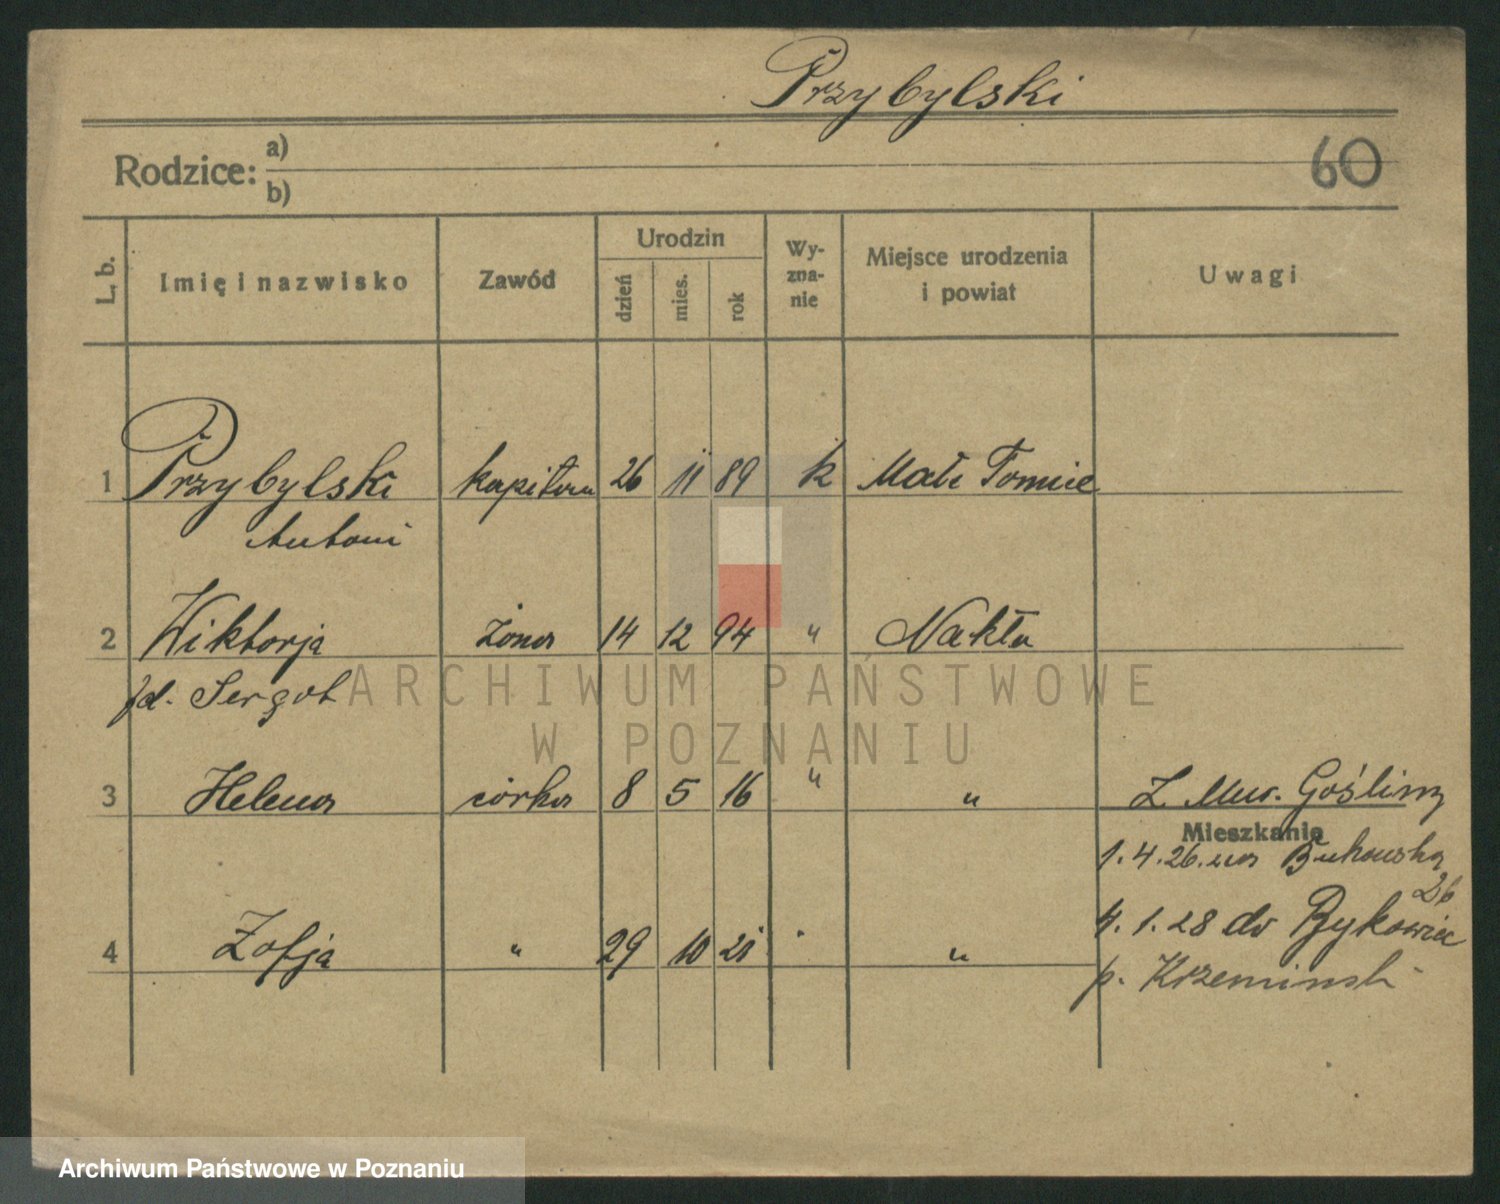 Przybylski
Rodzice: a)
b)
60
L. b. Imię i nazwisko Zawód Urodzin dzień mies. rok Wy-zna-nie Miejsce urodzenia i powiat Uwagi
1 Przybylski kapitan 26 11 89 k Małe Tomice
Antoni
2 Wiktorja żona 14 12 94 " Nakła
ARCHIWUM PAŃSTWOWE
W POZNANIU
3 Helena córka 8 5 16 " " Z Mur. Gośliny
Mieszkanie
1.4.26. na Bukowska
26
4.1.28 do Bykowiec
4 Zofja " 29 10 21 "
p. Krzeminski
Archiwum Państwowe w Poznaniu